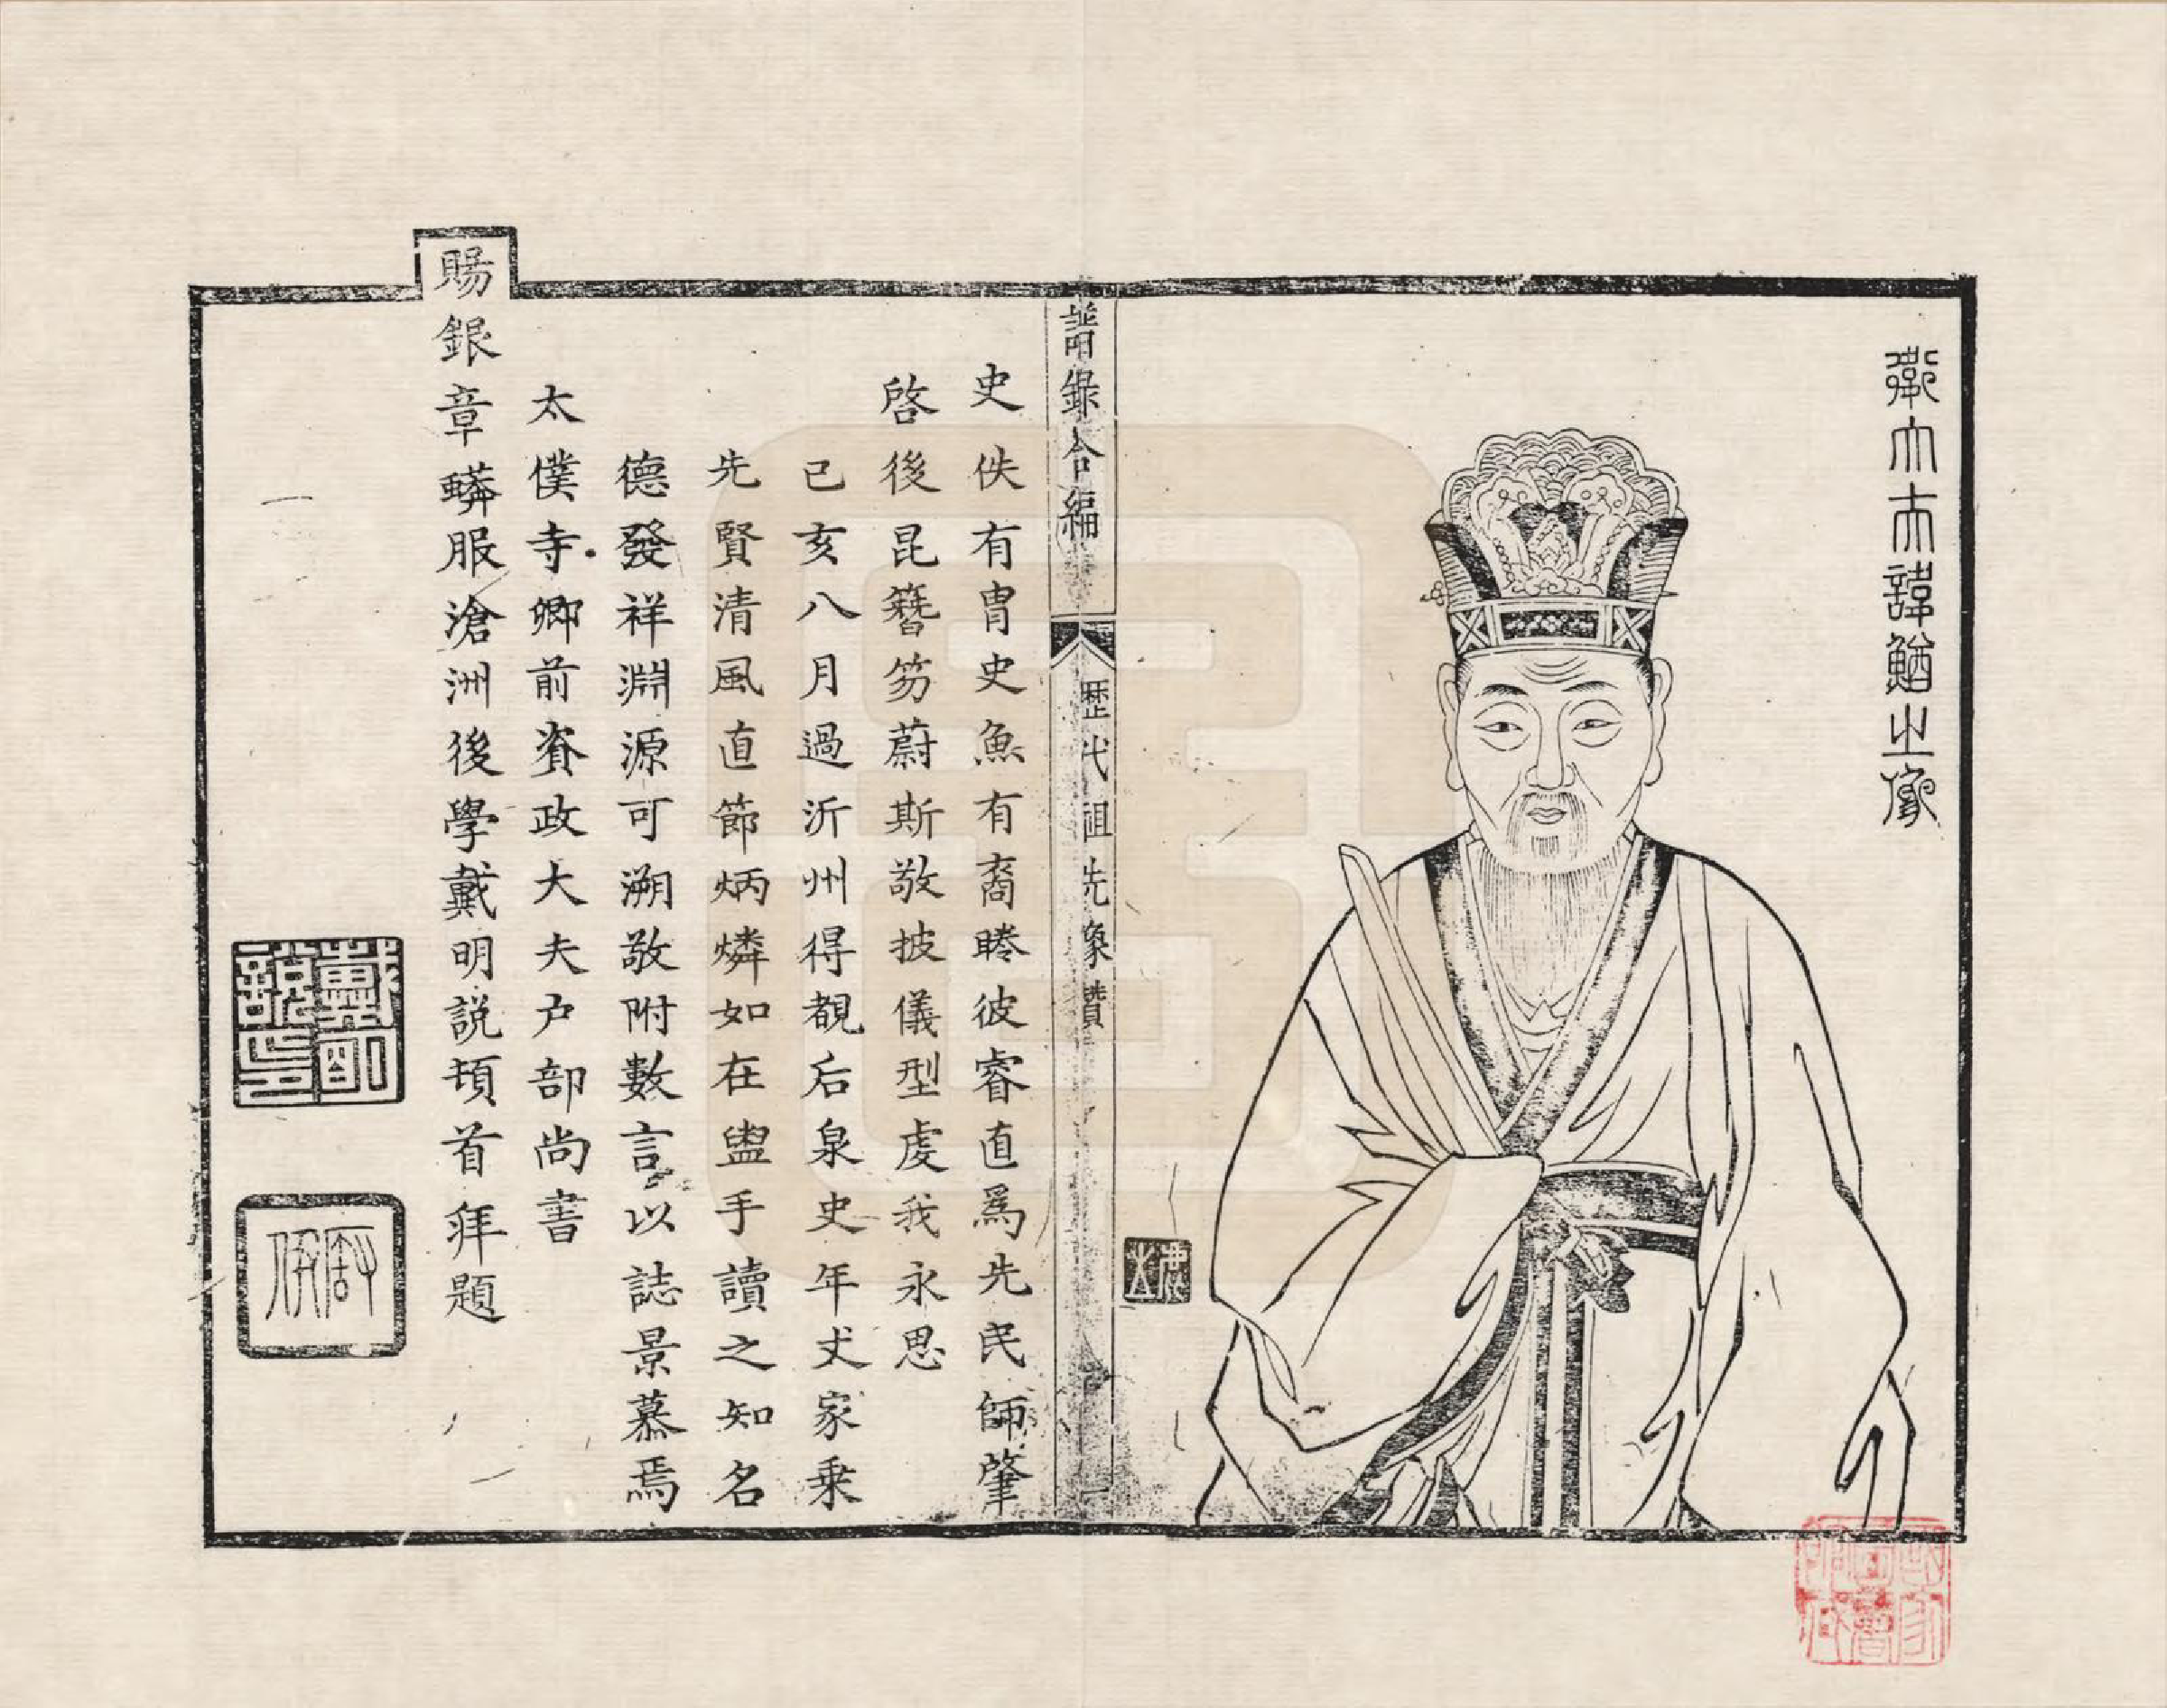 衛大夫諱鰌之像
譜錄合編
歷代祖先像贊
一
史佚有冑史魚有裔睠彼睿直爲先民師肇
啓後昆簪笏蔚斯敬披儀型虔我永思
己亥八月過沂州得覩后泉史年丈家乘
先賢清風直節炳燐如在盥手讀之知名
德發祥淵源可溯敬附數言以誌景慕焉
太僕寺卿前資政大夫户部尚書
賜銀章蟒服滄洲後學戴明説頓首拜題
戴明說印
國家圖書館藏